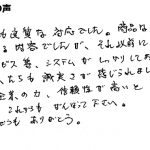 の声
も良質な対応でした。商品な
る内容でしたが、それ以前に
ビス等、システムがしっかりしてお
人たちも誠実さが感じられまし
企業の力、信頼性が高いと
これからもがんばって下さい。
どうもありがとう。